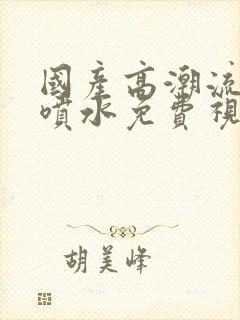 國產高潮流
噴水免費視
胡美峰